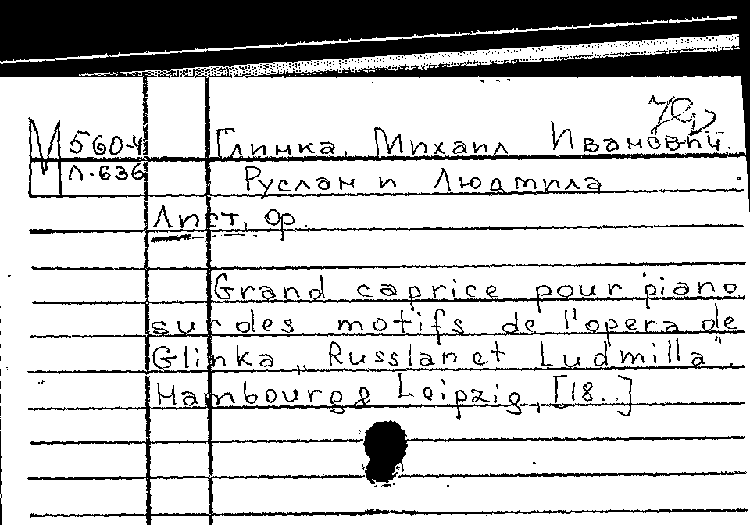 М 560-4 Глинка, Михаил Иванович.
Л-636 Руслан и Людмила
Лист, Фр.
Grand caprice pour piano
sur des motifs de l'opera de
Glinka „Russlan et Ludmilla".
Hambourg & Leipzig, [18..]